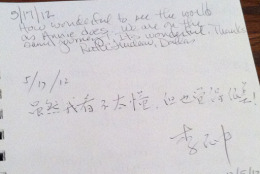 5/17/12
How wonderful to see the world
as Annie does. We are on the
same journey, it's wonderful. Thanks
Dallas
5/17/12
虽然我看不太懂,但也觉得很美!